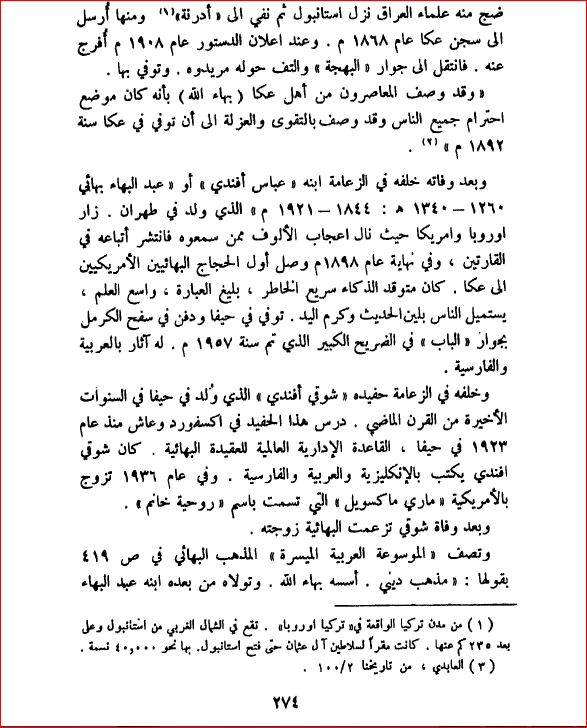 ضج منه علماء العراق نزل استانبول ثم نفي الى « أدرنة »(١) ومنها أُرسل
الى سجن عكا عام ١٨٦٨ م . وعند اعلان الدستور عام ١٩٠٨ م أُفرج
عنه . فانتقل الى جوار « البهجة » والتف حوله مريدوه . وتوفي بها .
« وقد وصف المعاصرون من أهل عكا ( بهاء الله ) بأنه كان موضع
احترام جميع الناس وقد وصف بالتقوى والعزلة الى أن توفي في عكا سنة
١٨٩٢ م » (٢) .
وبعد وفاته خلفه في الزعامة ابنه « عباس أفندي » أو « عبد البهاء بهائي
١٢٦٠ – ١٣٤٠ ه : ١٨٤٤ – ١٩٢١ م » الذي ولد في طهران . زار
اوروبا وامريكا حيث نال اعجاب الألوف ممن سمعوه فانتشر أتباعه في
القارتين ، وفي نهاية عام ١٨٩٨م وصل أول الحجاج البهائيين الأمريكيين
الى عكا . كان متوقد الذكاء سريع الخاطر ، بليغ العبارة ، واسع العلم ،
يستميل الناس بلين الحديث وكرم اليد . توفي في حيفا ودفن في سفح الكرمل
بجوار « الباب » في الضريح الكبير الذي تم سنة ١٩٥٧ م . له آثار بالعربية
والفارسية .
وخلفه في الزعامة حفيده « شوقي أفندي » الذي وُلد في حيفا في السنوات
الأخيرة من القرن الماضي . درس هذا الحفيد في اكسفورد وعاش منذ عام
١٩٢٣ في حيفا ، القاعدة الإدارية العالمية للعقيدة البهائية . كان شوقي
افندي يكتب بالإنكليزية والعربية والفارسية . وفي عام ١٩٣٦ تزوج
بالأمريكية « ماري ماكسويل » التي تسمت باسم « روحية خانم » .
وبعد وفاة شوقي تزعمت البهائية زوجته .
وتصف « الموسوعة العربية الميسرة » المذهب البهائي في ص ٤١٩
بقولها : « مذهب ديني . أسسه بهاء الله . وتولاه من بعده ابنه عبد البهاء
( ١ ) من مدن تركيا الواقعة في « تركيا اوروبا » . تقع في الشمال الغربي من استانبول وعلى
بعد ٢٣٥ كم عنها . كانت مقراً لسلاطين آل عثمان حتى فتح استانبول. بها نحو ٤٠,٠٠٠ نسمة .
( ٣ ) العابدي ، من تاريخنا ١٠٠/٢ .
٢٧٤